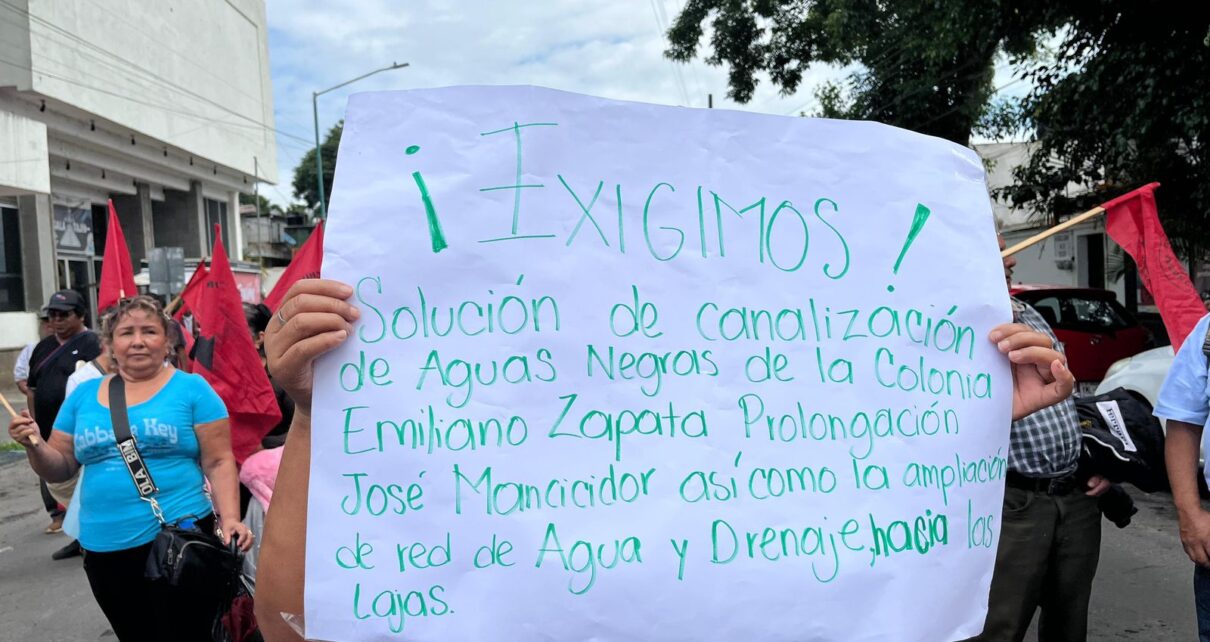 ¡Exigimos!
Solución de canalización
de Aguas Negras de la Colonia
Emiliano Zapata Prolongación
José Mancicidor así como la ampliación
de red de Agua y Drenaje, hacia las
Lajas.
Key